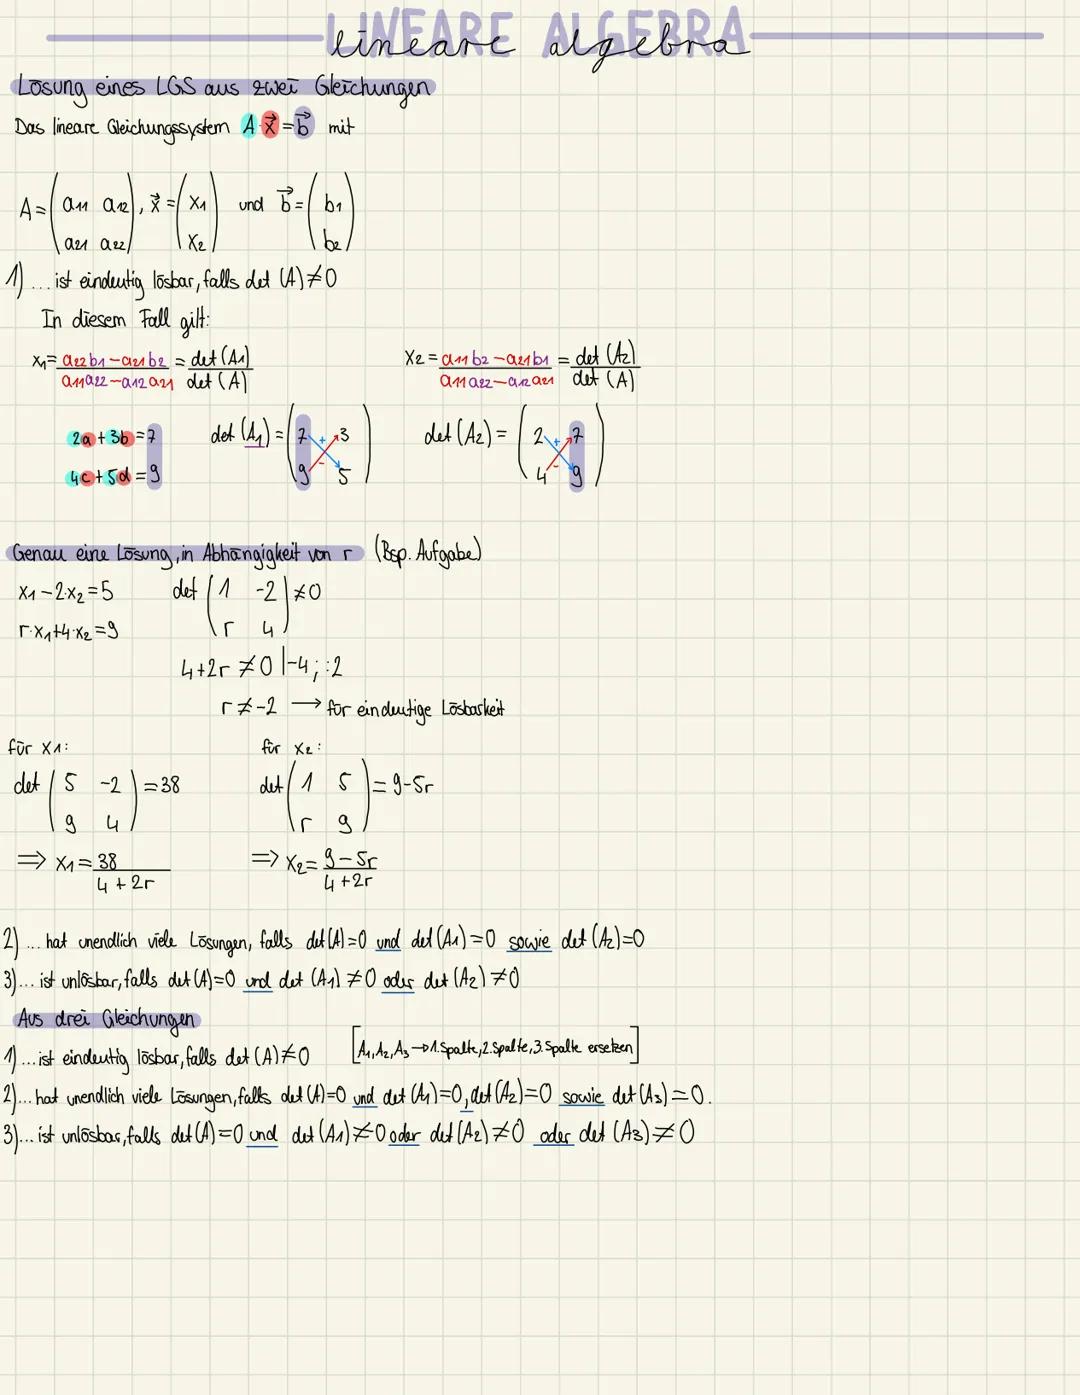 LINEARE ALGEBRA
lineare algebra
Lösung eines LGS aus zwei Gleichungen
Das lineare Gleichungssystem A·x⃗ = b⃗ mit
A = (a11 a12; a21 a22), x⃗ = (x1; x2) und b⃗ = (b1; b2)
1) ... ist eindeutig lösbar, falls det (A) ≠ 0
In diesem Fall gilt:
x1 = (a22 b1 − a21 b2)/(a11 a22 − a12 a21) = det (A1)/det (A)    x2 = (a11 b2 − a21 b1)/(a11 a22 − a12 a21) = det (A2)/det (A)
2a + 3b = 7    det (A1) = (7 3; 9 5)    det (A2) = (2 7; 4 9)
4c + 5d = 9
Genau eine Lösung, in Abhängigkeit von r (Bsp. Aufgabe)
x1 − 2·x2 = 5    det (1 -2; r 4) ≠ 0
r·x1 + 4·x2 = 9
4 + 2r ≠ 0 | −4; :2
r ≠ -2 → für eindeutige Lösbarkeit
für x1:    für x2:
det (5 -2; 9 4) = 38    det (1 5; r 9) = 9-5r
⇒ x1 = 38/(4 + 2r)    ⇒ x2 = (9 − 5r)/(4 + 2r)
2) ... hat unendlich viele Lösungen, falls det (A) = 0 und det (A1) = 0 sowie det (A2) = 0
3) ... ist unlösbar, falls det (A) = 0 und det (A1) ≠ 0 oder det (A2) ≠ 0
Aus drei Gleichungen
1) ... ist eindeutig lösbar, falls det (A) ≠ 0    [A1, A2, A3 → 1. Spalte, 2. Spalte, 3. Spalte ersetzen]
2) ... hat unendlich viele Lösungen, falls det (A) = 0 und det (A1) = 0, det (A2) = 0 sowie det (A3) = 0.
3) ... ist unlösbar, falls det (A) = 0 und det (A1) ≠ 0 oder det (A2) ≠ 0 oder det (A3) ≠ 0